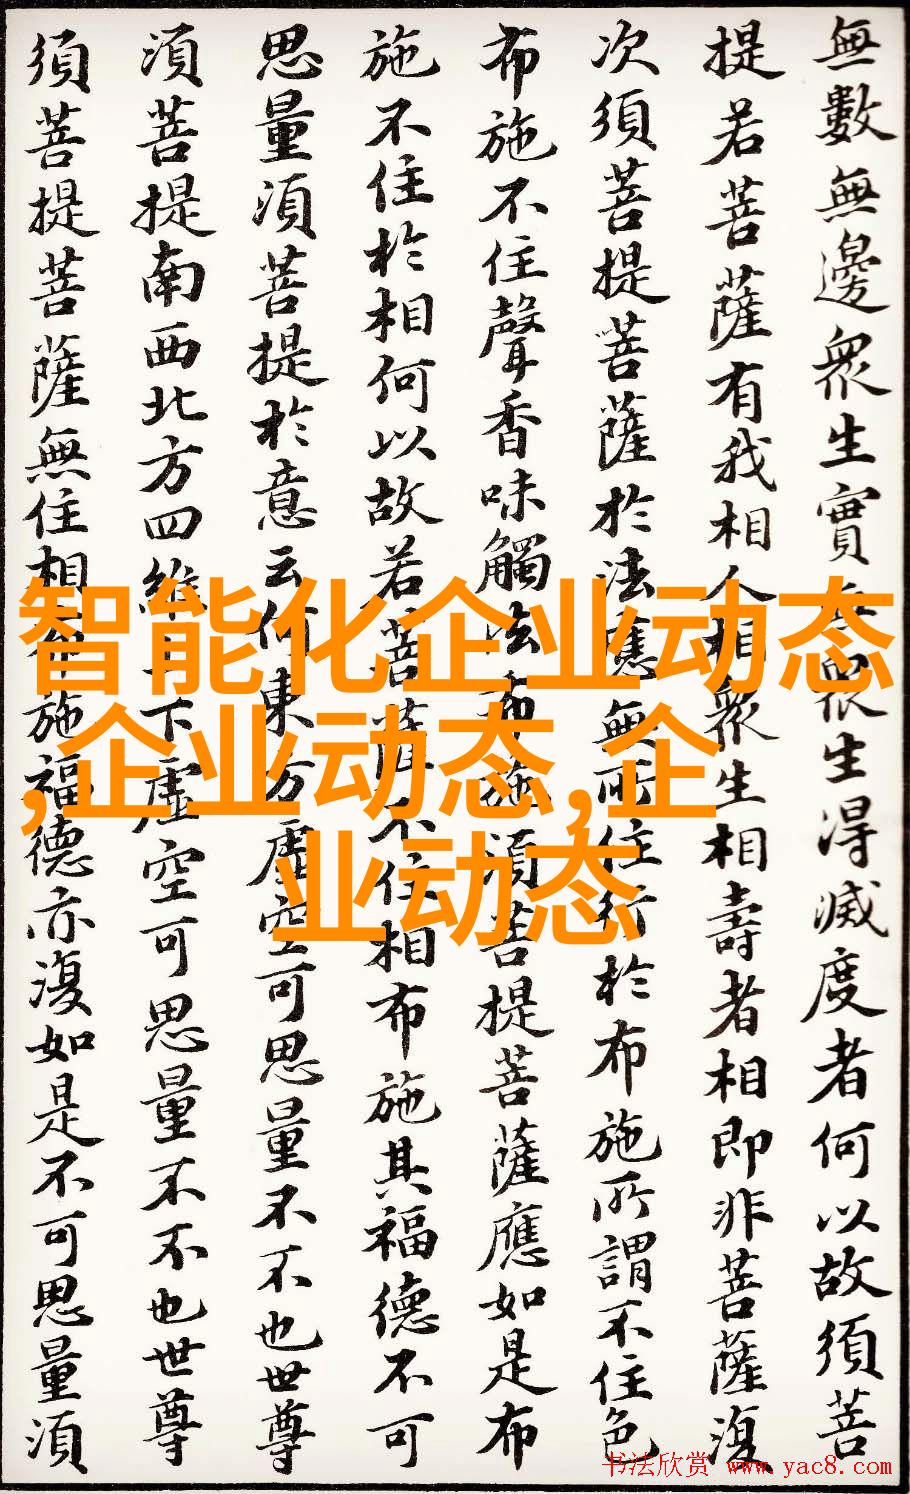 無數無邊衆生實無衆生得滅度者何以故須菩
提若菩薩有我相人相衆生相壽者相即非菩薩復
次須菩提菩薩於法應無所住行於布施所謂不住色
布施不住聲香味觸法布施須菩提菩薩應如是布
施不住於相何以故若菩薩不住相布施其福德不可
思量須菩提於意云何東方虛空可思量不不也世尊
須菩提南西北方四維上下虛空可思量不不也世尊
須菩提菩薩無住相布施福德亦復如是不可思量須
智能化企业动态
,企业动态,企
业动态
书法欣赏 www.yac8.com